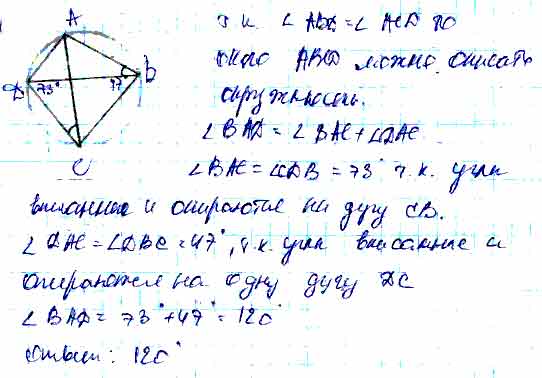 A
D
B
C
73°
47°
т.к. ∠ABD = ∠ACD то
около ABCD можно описать
окружность.
∠BAD = ∠BAC + ∠DAC
∠BAC = ∠CDB = 73° т.к. углы
вписанные и опираются на дугу CB.
∠DAC = ∠DBC = 47°, т.к. углы вписанные и
опираются на одну дугу DC
∠BAD = 73° + 47° = 120°
Ответ: 120°